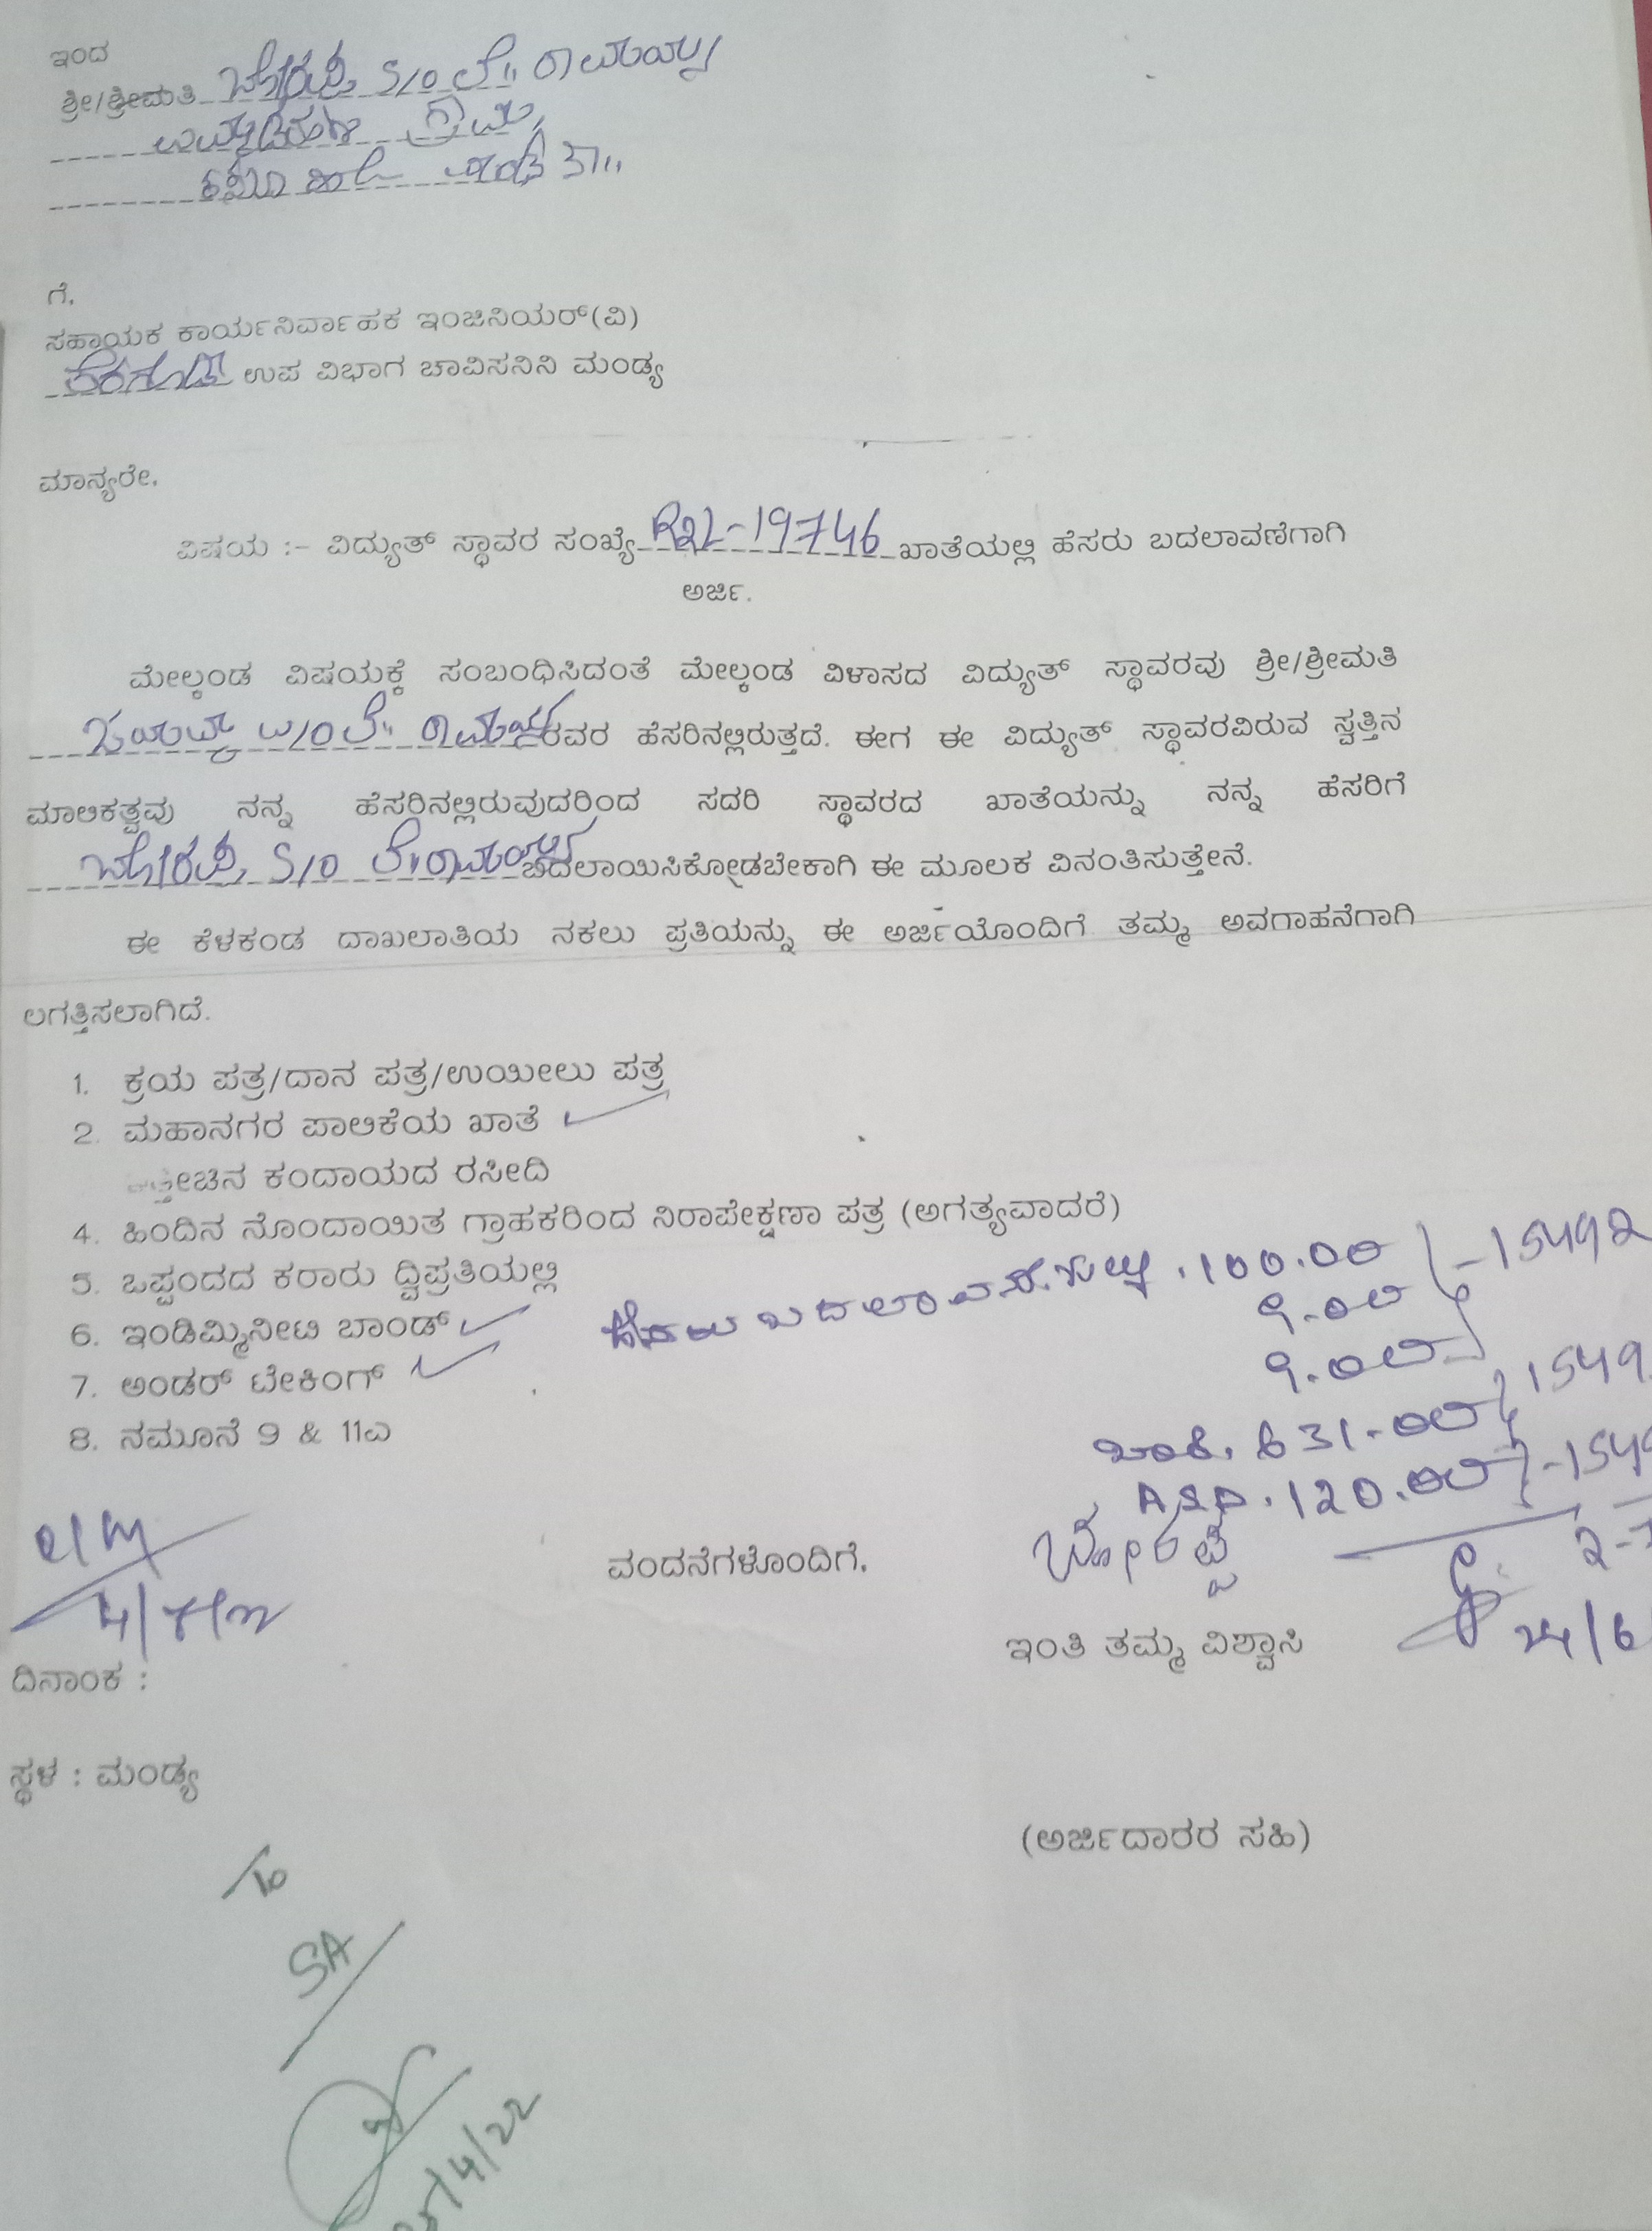 ಇಂದ
ಶ್ರೀ/ಶ್ರೀಮತಿ ಬೋರಪ್ಪ S/o ಲೇ॥ ರಾಮಯ್ಯ
ಗ್ರಾಮ,
ತಾ॥
ಗೆ,
ಸಹಾಯಕ ಕಾರ್ಯನಿರ್ವಾಹಕ ಇಂಜಿನಿಯರ್(ವಿ)
ಉಪ ವಿಭಾಗ ಚಾವಿಸನಿನಿ ಮಂಡ್ಯ
ಮಾನ್ಯರೇ,
ವಿಷಯ :- ವಿದ್ಯುತ್ ಸ್ಥಾವರ ಸಂಖ್ಯೆ 19746 ಖಾತೆಯಲ್ಲಿ ಹೆಸರು ಬದಲಾವಣೆಗಾಗಿ
ಅರ್ಜಿ.
ಮೇಲ್ಕಂಡ ವಿಷಯಕ್ಕೆ ಸಂಬಂಧಿಸಿದಂತೆ ಮೇಲ್ಕಂಡ ವಿಳಾಸದ ವಿದ್ಯುತ್ ಸ್ಥಾವರವು ಶ್ರೀ/ಶ್ರೀಮತಿ
ರವರ ಹೆಸರಿನಲ್ಲಿರುತ್ತದೆ. ಈಗ ಈ ವಿದ್ಯುತ್ ಸ್ಥಾವರವಿರುವ ಸ್ವತ್ತಿನ
ಮಾಲಿಕತ್ವವು ನನ್ನ ಹೆಸರಿನಲ್ಲಿರುವುದರಿಂದ ಸದರಿ ಸ್ಥಾವರದ ಖಾತೆಯನ್ನು ನನ್ನ ಹೆಸರಿಗೆ
ಬೋರಪ್ಪ S/o ಲೇ॥ ರಾಮಯ್ಯ ಬದಲಾಯಿಸಿಕೋಡಬೇಕಾಗಿ ಈ ಮೂಲಕ ವಿನಂತಿಸುತ್ತೇನೆ.
ಈ ಕೆಳಕಂಡ ದಾಖಲಾತಿಯ ನಕಲು ಪ್ರತಿಯನ್ನು ಈ ಅರ್ಜಿಯೊಂದಿಗೆ ತಮ್ಮ ಅವಗಾಹನೆಗಾಗಿ
ಲಗತ್ತಿಸಲಾಗಿದೆ.
1. ಕ್ರಯ ಪತ್ರ/ದಾನ ಪತ್ರ/ಉಯೀಲು ಪತ್ರ
2. ಮಹಾನಗರ ಪಾಲಿಕೆಯ ಖಾತೆ
ಕಂದಾಯದ ರಸೀದಿ
4. ಹಿಂದಿನ ನೊಂದಾಯಿತ ಗ್ರಾಹಕರಿಂದ ನಿರಾಪೇಕ್ಷಣಾ ಪತ್ರ (ಅಗತ್ಯವಾದರೆ)
5. ಒಪ್ಪಂದದ ಕರಾರು ದ್ವಿಪ್ರತಿಯಲ್ಲಿ
6. ಇಂಡಿಮ್ನಿನೀಟಿ ಬಾಂಡ್
7. ಅಂಡರ್ ಟೇಕಿಂಗ್
8. ನಮೂನೆ 9 & 11ಎ
100.00 - 15492
9.00
9.00
631.00
ASD. 120.00
ವಂದನೆಗಳೊಂದಿಗೆ,
ಬೋರಪ್ಪ
ಇಂತಿ ತಮ್ಮ ವಿಶ್ವಾಸಿ
24/6
ದಿನಾಂಕ :
ಸ್ಥಳ : ಮಂಡ್ಯ
(ಅರ್ಜಿದಾರರ ಸಹಿ)
To
SA
25/4/22